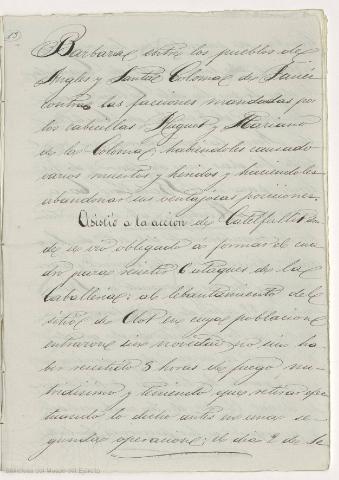 13
Barbara entre los pueblos de
Angles y Santa Coloma de Farnés
contra las faciones mandadas por
los cabecillas Huguet y Mariano
de la Coloma, habiendoles causado
varios muertos y heridos y haciendoles
abandonar sus ventajosas posiciones.
Asistió a la acción de Castelfullit don
de se vio obligado a formar el cua
dro para resistir 6 ataques de la
Caballeria; al lebantamiento del
sitio de Olot en cuya poblacion
entraron sin novedad no sin ha
ber resistido 3 horas de fuego nu
tridisimo y teniendo que retirar efec
tuando lo dicho antes en una se
gunda operacion; el dia 2 de Se
Biblioteca del Museo del Ejército